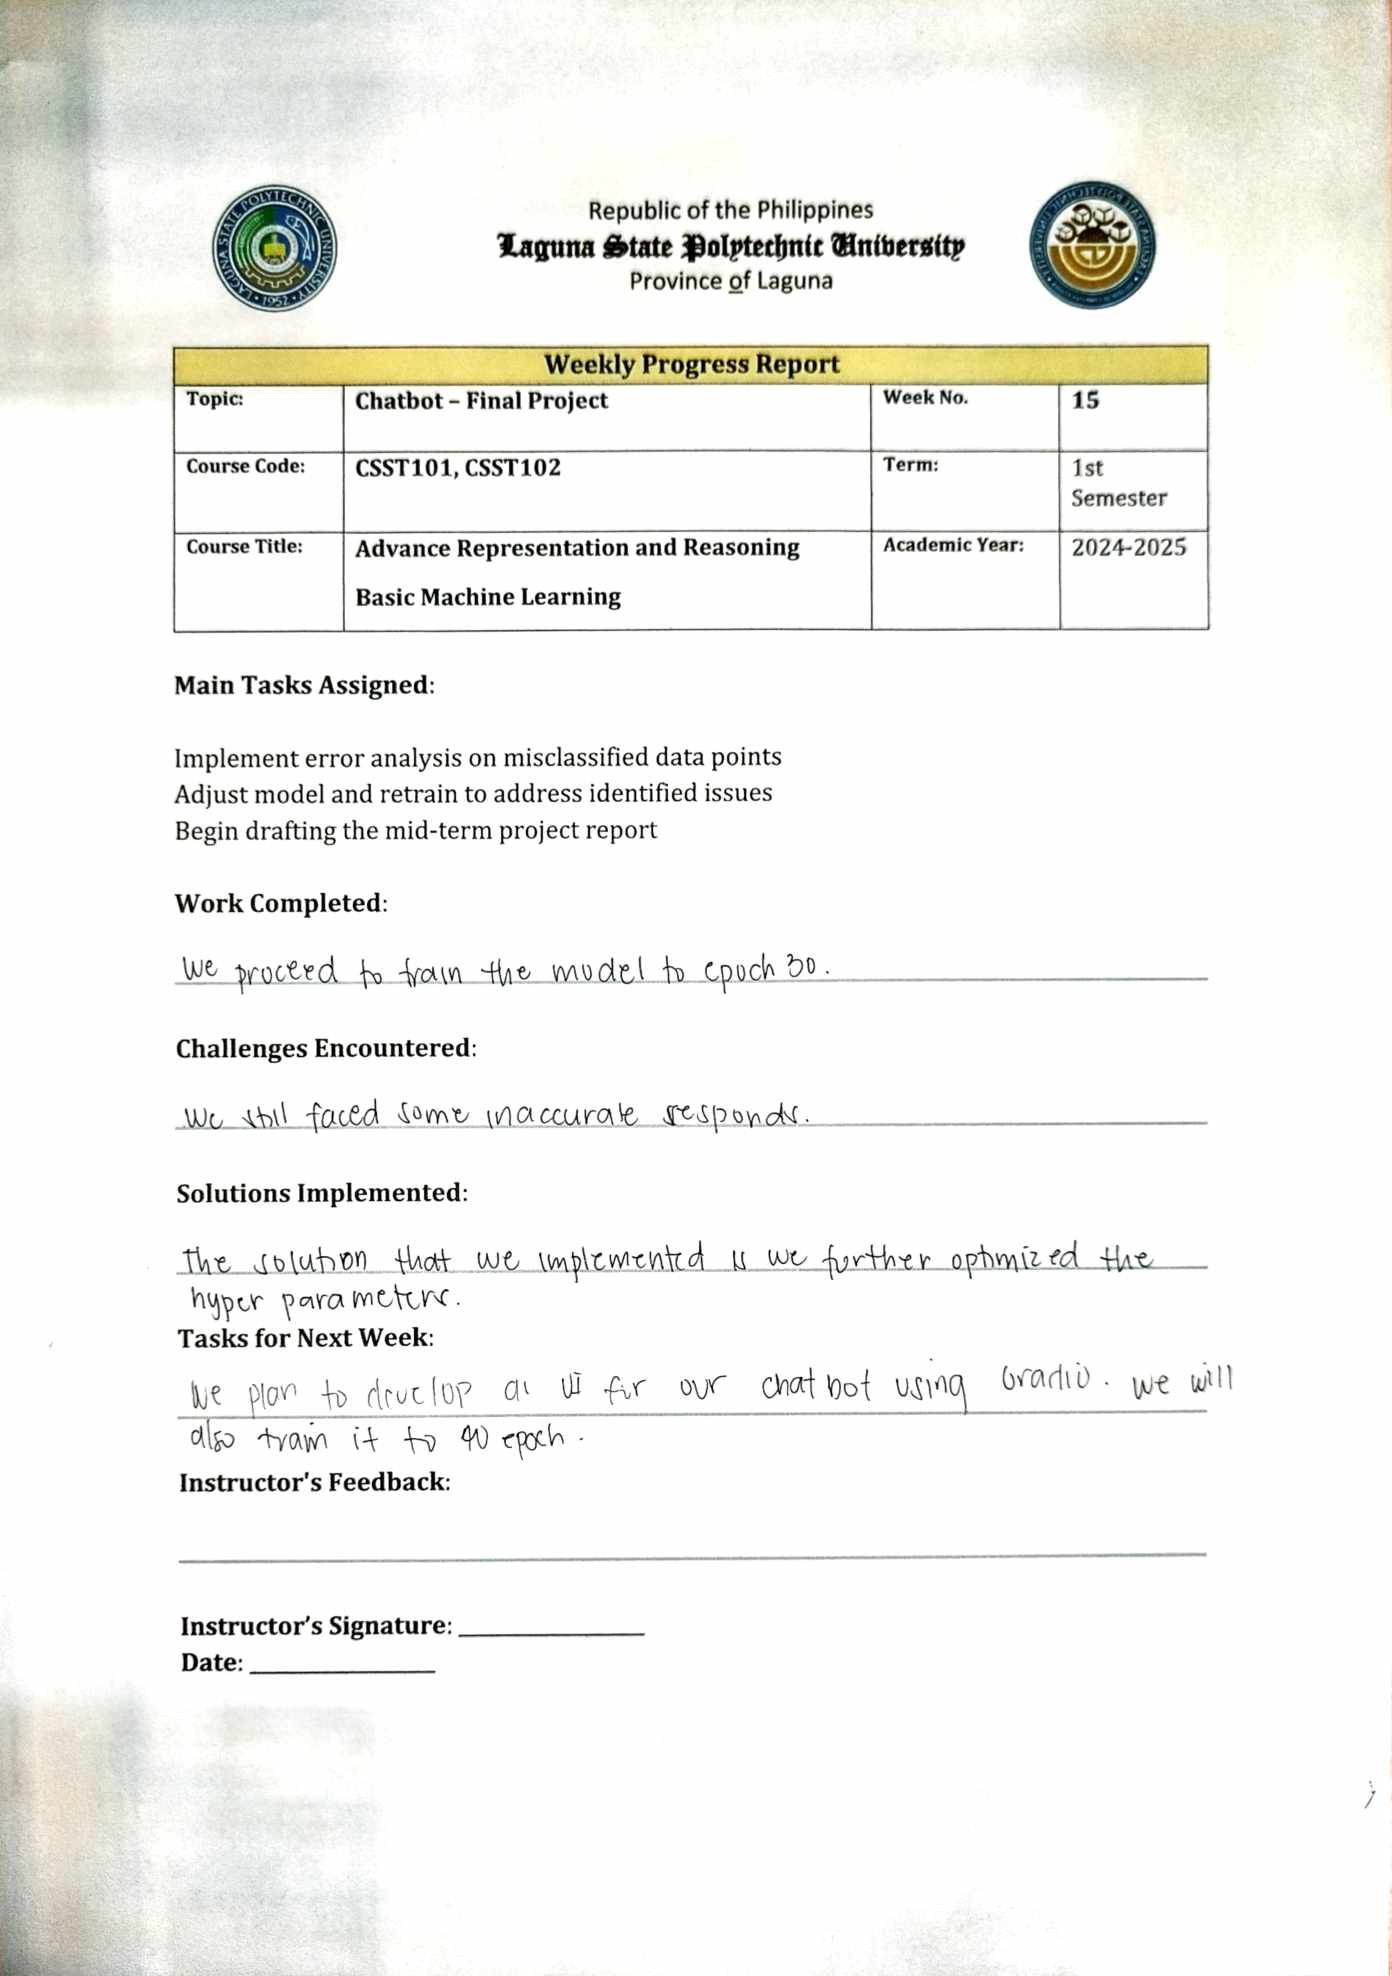 LAGUNA STATE POLYTECHNIC UNIVERSITY
1952
Republic of the Philippines
Laguna State Polytechnic University
Province of Laguna
Weekly Progress Report
Topic: Chatbot – Final Project Week No. 15
Course Code: CSST101, CSST102 Term: 1st
Semester
Course Title: Advance Representation and Reasoning Academic Year: 2024-2025
Basic Machine Learning
Main Tasks Assigned:
Implement error analysis on misclassified data points
Adjust model and retrain to address identified issues
Begin drafting the mid-term project report
Work Completed:
We proceed to train the model to epoch 30.
Challenges Encountered:
We still faced some inaccurate responds.
Solutions Implemented:
The solution that we implemented is we further optimized the
hyper parameters.
Tasks for Next Week:
We plan to develop a UI for our chatbot using Gradio. we will
also train it to 40 epoch.
Instructor's Feedback:
Instructor’s Signature:
Date: